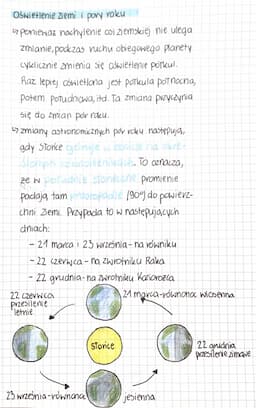 Oświetlenie ziemi i pory roku
↳ ponieważ nachylenie osi ziemskiej nie ulega
zmianie, podczas ruchu obiegowego planety
cyklicznie zmienia się oświetlenie półkul.
Raz lepiej oświetlona jest półkula północna,
potem południowa, itd. Ta zmiana przyczynia
się do zmian pór roku.
↳ zmiany astronomicznych pór roku następują,
gdy Słońce góruje w zenicie na okre-
ślonych szerokościach. To oznacza,
że w południe słoneczne promienie
padają tam prostopadle (90°) do powierz-
chni ziemi. Przypada to w następujących
dniach:
- 21 marca i 23 września - na równiku
- 22 czerwca - na zwrotniku Raka
- 22 grudnia - na zwrotniku Koziorożca
22 czerwca
przesilenie
letnie
21 marca - równonoc wiosenna
Słońce
22 grudnia
przesilenie zimowe
23 września - równonoc jesienna